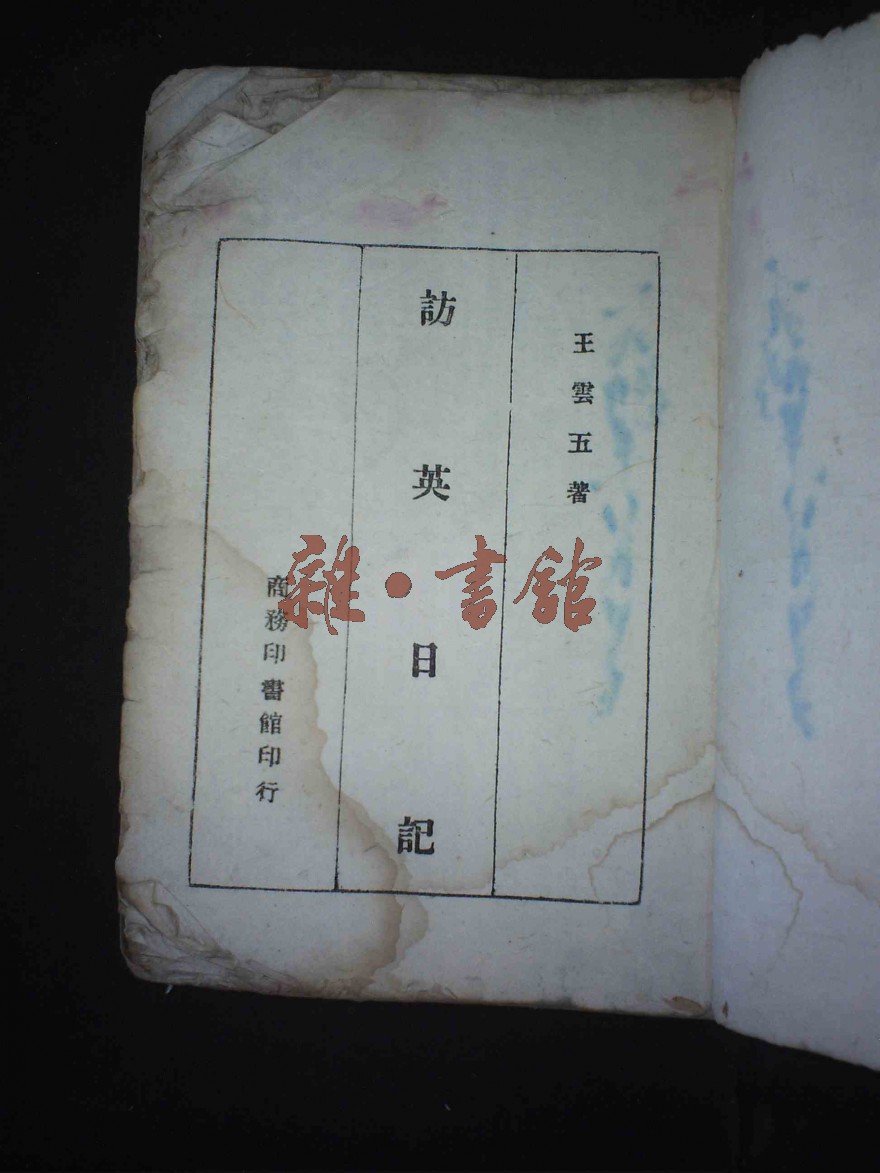 王雲五著
訪英日記
商務印書館印行
雜·書館